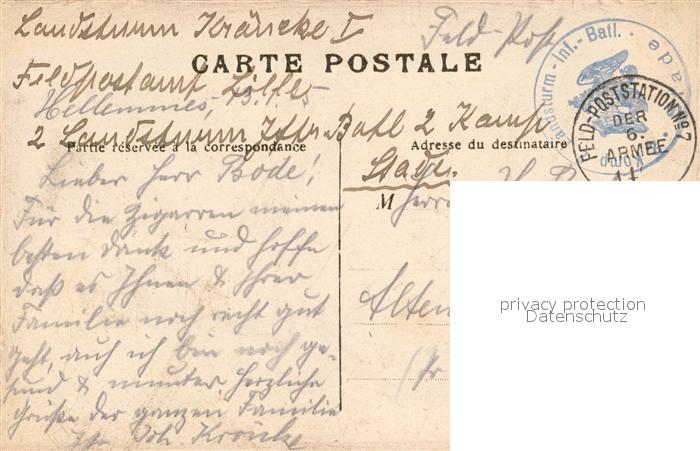 Landsturm Kröncke I
Feld-Post
CARTE POSTALE
Feldpostamt Lille
Hellemmes,
2 Landsturm Inftr. Batl 2 Komp
Partie réservée à la correspondance
Adresse du destinataire
Stade.
Landsturm-Inf.-Batl. Stade
Komp.
FELD-POSTSTATION No 7
DER
6.
ARMEE
Lieber Herr Bode!
Für die Zigarren meinen
besten Dank und hoffe
daß es Ihnen & Ihrer
Familie noch recht gut
geht, auch ich bin noch ge-
sund & munter herzliche
Grüße der ganzen Familie
Ihr Joh. Kröncke
M
Herrn
Alten
privacy protection
Datenschutz